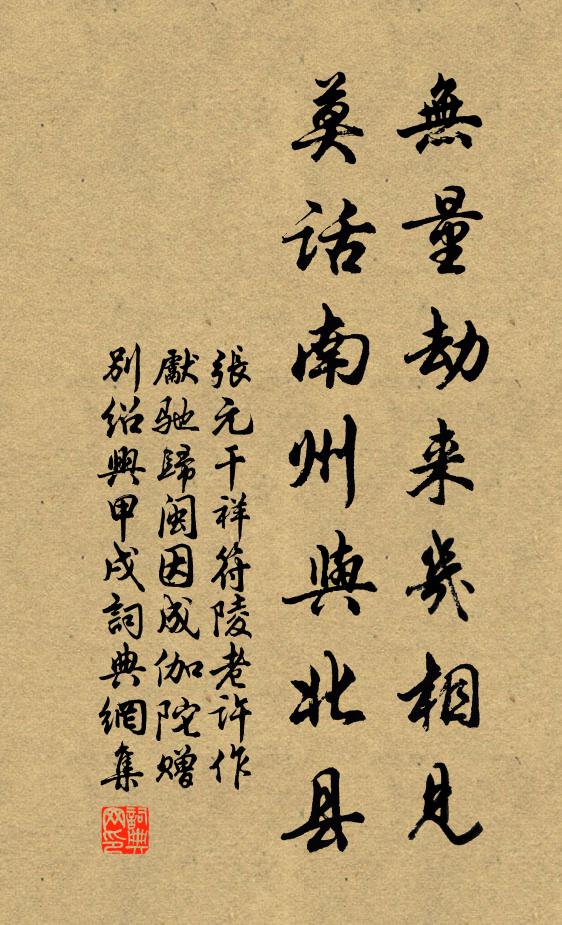 無量劫来幾相見
莫话南州與北县
張元干祥符陵老许作
獻馳歸闽因成伽陀赠
別绍興甲戌詞典網集
詞典
网印